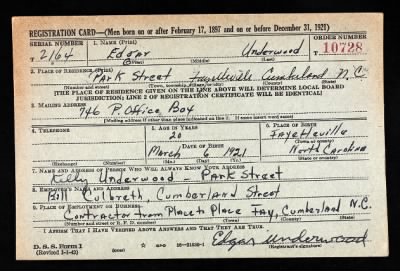 REGISTRATION CARD—(Men born on or after February 17, 1897 and on or before December 31, 1921)
SERIAL NUMBER 1. NAME (Print) ORDER NUMBER
T 2164 Edgar Underwood T 10728
(First) (Middle) (Last)
2. PLACE OF RESIDENCE (Print)
Park Street Fayetteville Cumberland N.C.
(Number and street) (Town, township, village, or city) (County) (State)
[THE PLACE OF RESIDENCE GIVEN ON THE LINE ABOVE WILL DETERMINE LOCAL BOARD
JURISDICTION; LINE 2 OF REGISTRATION CERTIFICATE WILL BE IDENTICAL]
3. MAILING ADDRESS
746 P. Office Box
[Mailing address if other than place indicated on line 2. If same insert word same]
4. TELEPHONE 5. AGE IN YEARS 6. PLACE OF BIRTH
20 Fayetteville
DATE OF BIRTH (Town or county)
March 6 1921 North Carolina
(Exchange) (Number) (Mo.) (Day) (Yr.) (State or country)
7. NAME AND ADDRESS OF PERSON WHO WILL ALWAYS KNOW YOUR ADDRESS
Underwood Park Street
8. EMPLOYER'S NAME AND ADDRESS
Bill Culbreth, Cumberland Street
9. PLACE OF EMPLOYMENT OR BUSINESS
Contractor from Place to Place Fay, Cumberland N.C.
(Number and street or R. F. D. number) (Town) (County) (State)
I AFFIRM THAT I HAVE VERIFIED ABOVE ANSWERS AND THAT THEY ARE TRUE.
D. S. S. Form 1 Edgar Underwood
(Revised 1-1-42) (over) 16-21630-1 (Registrant's signature)